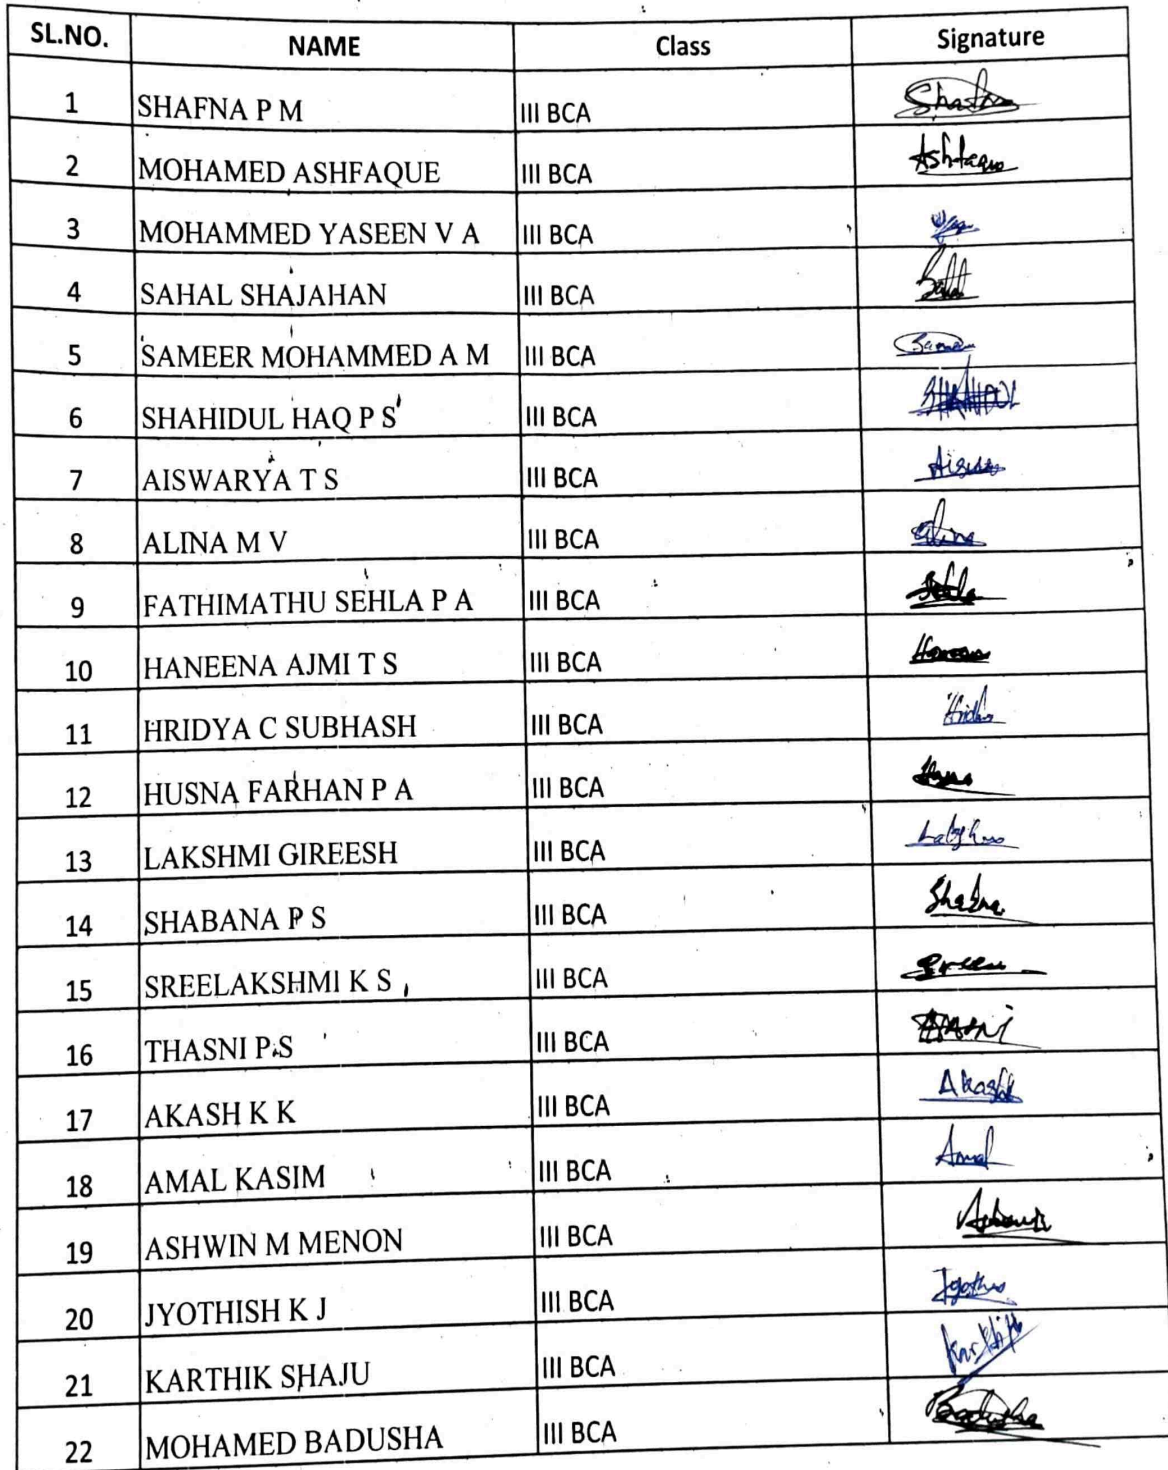 SL.NO. NAME Class Signature
1 SHAFNA P M III BCA Shafna
2 MOHAMED ASHFAQUE III BCA Ashfaque
3 MOHAMMED YASEEN V A III BCA
4 SAHAL SHAJAHAN III BCA Sahal
5 SAMEER MOHAMMED A M III BCA
6 SHAHIDUL HAQ P S III BCA SHAHIDUL
7 AISWARYA T S III BCA
8 ALINA M V III BCA Alina
9 FATHIMATHU SEHLA P A III BCA
10 HANEENA AJMI T S III BCA
11 HRIDYA C SUBHASH III BCA
12 HUSNA FARHAN P A III BCA
13 LAKSHMI GIREESH III BCA
14 SHABANA P S III BCA
15 SREELAKSHMI K S III BCA
16 THASNI P S III BCA THASNI
17 AKASH K K III BCA Akash
18 AMAL KASIM III BCA Amal
19 ASHWIN M MENON III BCA
20 JYOTHISH K J III BCA
21 KARTHIK SHAJU III BCA Karthik
22 MOHAMED BADUSHA III BCA Badusha